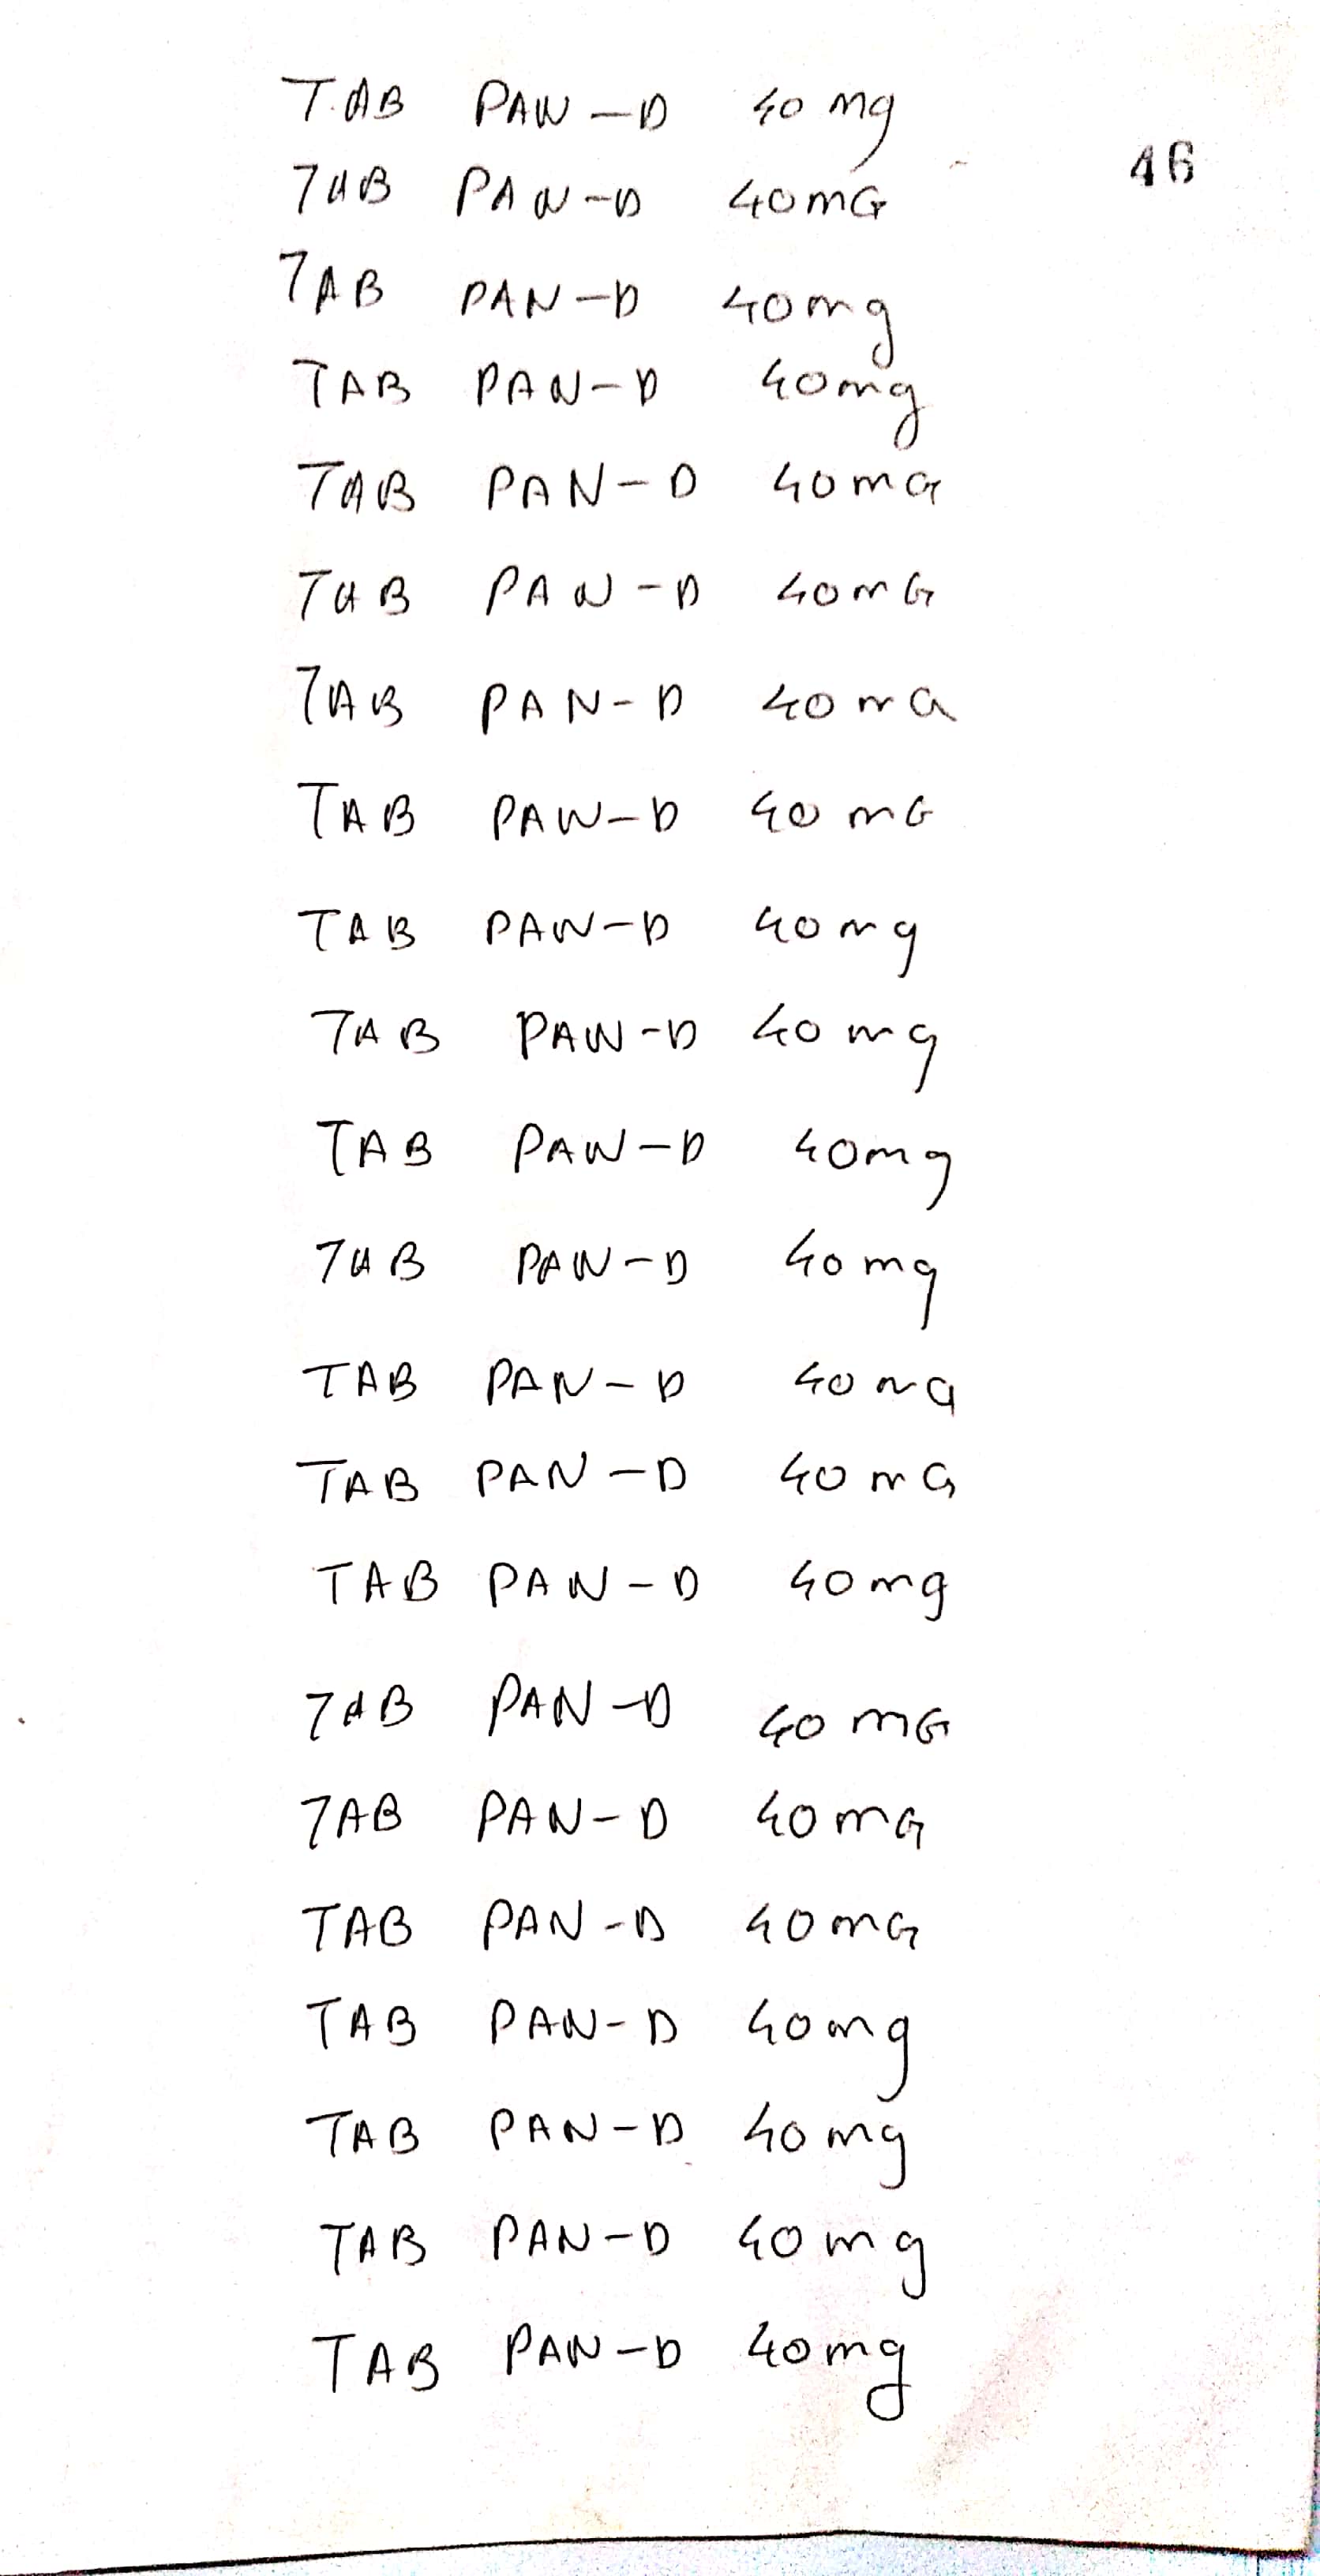 TAB PAN-D 40 mg
46
TAB PAN-D 40mG
TAB PAN-D 40mg
TAB PAN-D 40mg
TAB PAN-D 40mG
TAB PAN-D 40mG
TAB PAN-D 40mG
TAB PAN-D 40 mG
TAB PAN-D 40mg
TAB PAN-D 40 mg
TAB PAN-D 40mg
TAB PAN-D 40mg
TAB PAN-D 40mG
TAB PAN-D 40 mG
TAB PAN-D 40mg
TAB PAN-D 40 mG
TAB PAN-D 40mG
TAB PAN-D 40mG
TAB PAN-D 40mg
TAB PAN-D 40mg
TAB PAN-D 40mg
TAB PAN-D 40mg